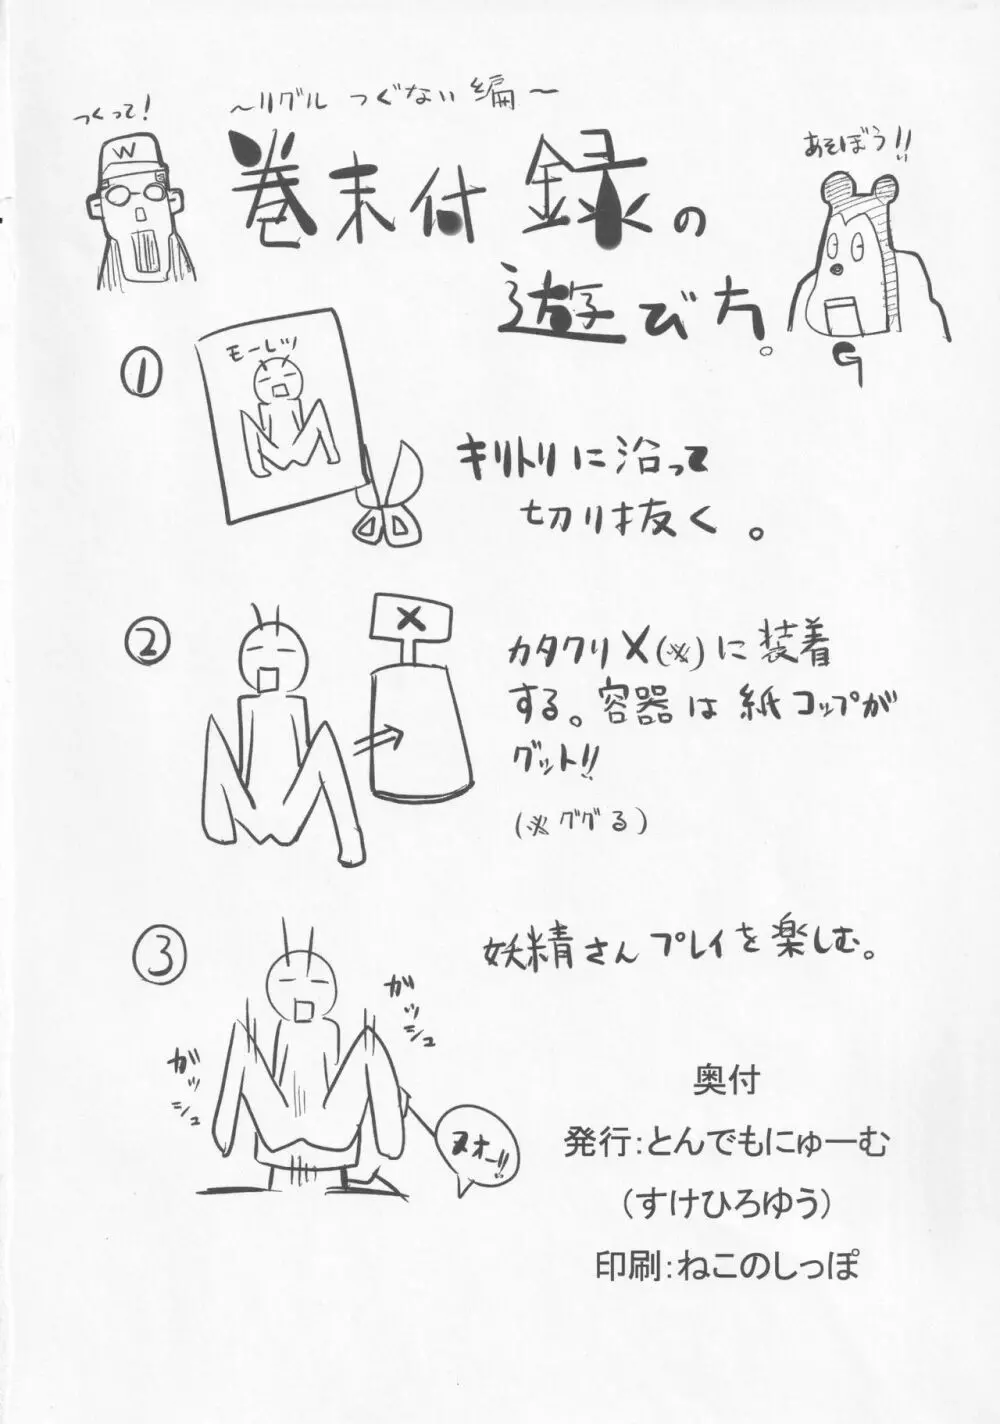 ～リグル つぐない編～
つくって!
W
巻末付録の
遊び方。
あそぼう!!
G
①
モーレツ
キリトリに沿って
切り抜く。
②
X
カタクリX(※)に装着
する。容器は紙コップが
グット!!
(※ググる)
③
妖精さんプレイを楽しむ。
ガッシュ
ガッシュ
ヌオー!!
奥付
発行:とんでもにゅーむ
(すけひろゆう)
印刷:ねこのしっぽ